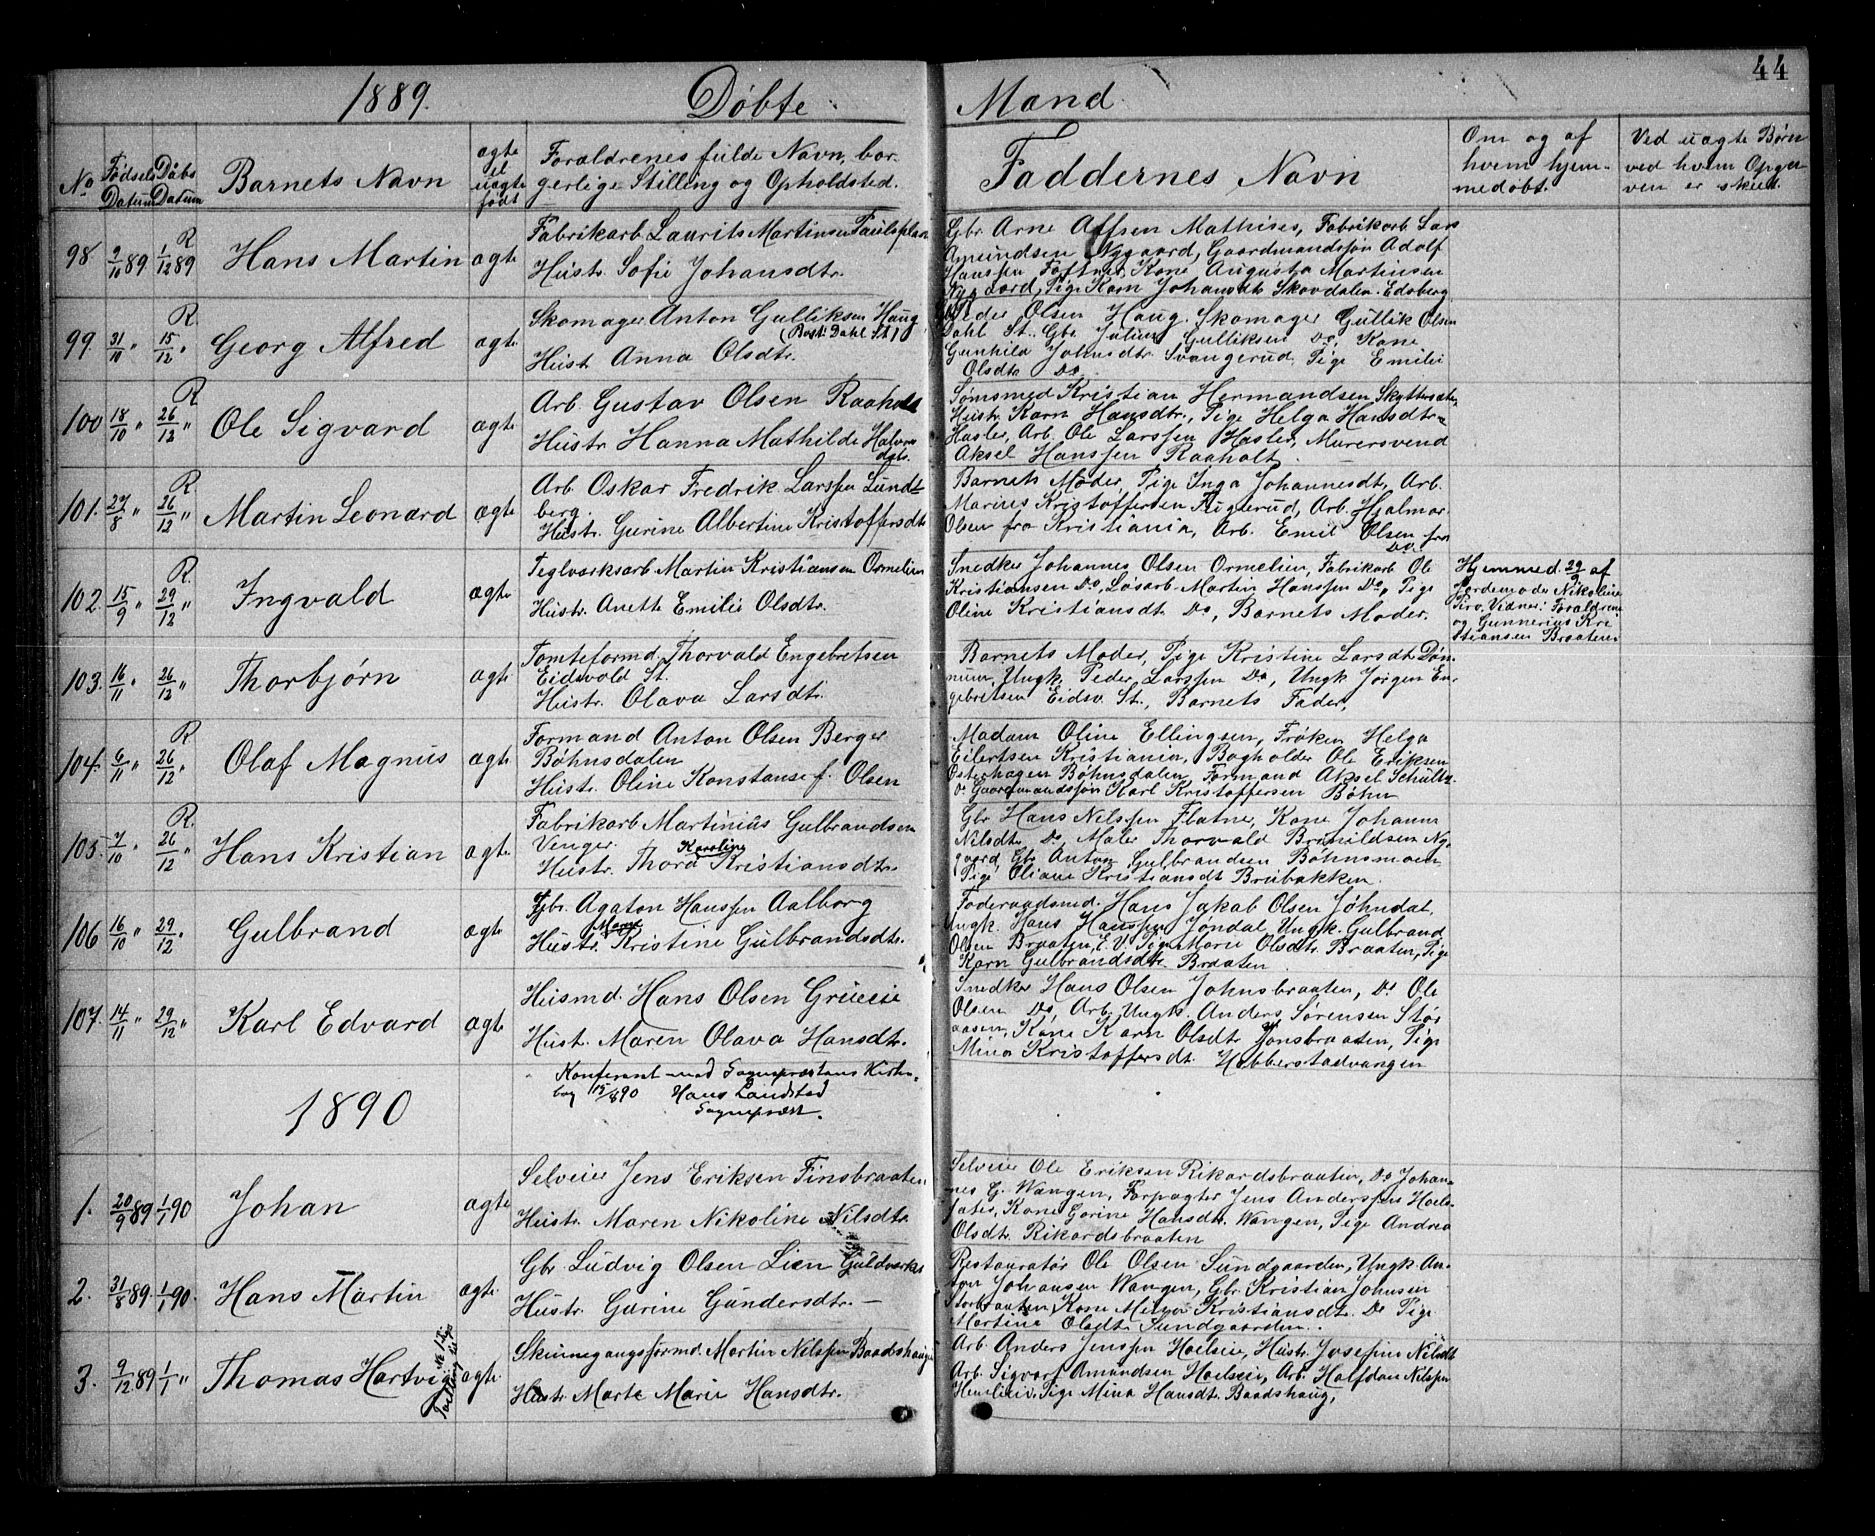 44
1889. Døbte Mand
No
Fødsels Datum
Døbs Datum
Barnets Navn
ægte el uægte født
Forældrenes fulde Navn, borgerlige Stilling og Opholdsted.
Faddernes Navn
Om og af hvem hjemmedøbt.
Ved uægte Børn ved hvem Opgaven er skeet.
98. 9/10 89 R 1/12 89 Hans Martin ægte
Fabrikarb. Laurits Martinsen
Hustr. Sofie Johansdtr.
Gbr. Arne Alfsen Mathises, Fabrikarb. Lars
Amundsen Nygaard, Gaardmandssøn Adolf
Hanssen Toftner, Kone Augusta Martinsen
Nygaard, Pige Karn Johansdt. Skovdalen Edsberg
99. 31/10 " R. 15/12 " Georg Alfred ægte
Skomager Anton Gulliksen Haug
(Bost: Dahl St.)
Hust. Anna Olsdtr.
Peder Olsen Haug, Skomager Gullik Olsen
Dahl St., Gbr. Julius Gulliksen Do, Kone
Gunhild Johnsdtr. Svangerud, Pige Emilie
Olsdtr. Do
100 18/10 " R 26/12 " Ole Sigvard ægte
Arb. Gustav Olsen Raaholt
Hustr. Hanna Mathilde Halvors
datr.
Sømsmed Kristian Hermandsen
Hustr. Karn Hansdtr., Pige Helga Hansdtr.
Hasler, Arb. Ole Larssen Hasler, Murersvend
Aksel Hanssen Raaholt.
101. 27/8 " R 26/12 " Martin Leonard ægte
Arb. Oskar Fredrik Larssen Lund-
berg.
Hustr. Gurine Albertine Kristoffersdtr
Barnets Moder, Pige Inga Johannesdt, Arb.
Marius Kristoffersen Fugierud, Arb. Hjalmar
Olsen fra Kristiania, Arb. Emil Olsen fra
Do.
102. 15/9 " R. 29/12 " Ingvald ægte
Teglværksarb. Martin Kristiansen Ormelien
Hustr. Anette Emilie Olsdtr.
Snedker Johannes Olsen Ormelien, Fabrikarb Ole
Kristiansen Do, Løsarb. Martin Hanssen Do, Pige
Oline Kristiansdt Do, Barnets Moder.
Hjemmed. 29/9 af
Jordemoder Nikoline
Tiro. Vidner: Forældrene
og Gunnerius Kri
stiansen Braaten
103. 16/11 " 26/12 " Thorbjørn ægte
Tomteformd. Thorvald Engebretsen
Eidsvold St.
Hustr. Olava Larsdtr.
Barnets Moder, Pige Kristine Larsdt. Døn-
num, Ungk. Peder Larssen Do, Ungk Jørgen En-
gebretsen Eidsv. St., Barnets Fader,
104. 6/11 " R 26/12 " Olaf Magnus ægte
Formand Anton Olsen Berger
Bøhnsdalen
Hustr. Oline Konstanse f. Olsen
Madam Oline Ellingsen, Frøken Helga
Eilertsen Kristiania, Bogholder Ole Eriksen
Østerhagen Bøhnsdalen, Formand Aksel Schultz
Do Gaardmandssøn Karl Kristoffersen Bøhn
105. 7/10 " R. 26/12 " Hans Kristian ægte
Fabrikarb. Martinius Gulbrandsen
Venger.
Karoline
Hustr. Thora Kristiansdtr.
Gbr Hans Nilssen Flatner, Kone Johanne
Nilsdtr. Do, Maler Thorvald Brynildsen Ny-
gaard, Gbr. Anton Gulbrandsen Bøhnsmoen
Pige Eliane Kristiansdt Brubakken.
106 16/10 " 29/12 " Gulbrand ægte
Gbr. Agaton Hanssen Aalborg
Hustr. Kristine Gulbrandsdtr.
Føderaadsmd. Hans Jakob Olsen Jøhndal,
Ungk. Hans Hanssen Jøndal, Ungk. Gulbrand
Olsen Braaten, E.V. Pige Marie Olsdtr. Braaten, Pige
Karn Gulbrandsdtr. Braaten
107. 14/11 " 29/12 " Karl Edvard ægte
Husmd. Hans Olsen Grueeie
Hust. Maren Olava Hansdtr.
Snedker Hans Olsen Johnsbraaten, Do Ole
Olsen Do, Arb. Ungk. Anders Sørensen Stør
aasen, Kone Karn Olsdtr. Jonsbraaten, Pige
Mina Kristoffersdt. Habberstadvangen
Konferert med Sognepræstens Kirke-
bog 15/ 890 Hans Landstad
Sognepræst.
1890
1. 20/9 89 1/1 90 Johan ægte
Selveier Jens Eriksen Finsbraaten
Hustr. Maren Nikoline Nilsdtr.
Selveier Ole Eriksen Rikardsbraaten, Do Johan-
nes G. Wangen, Forpagter Jens Anderssen Hoels-
, Kone Gorine Hansdtr. Wangen, Pige Andrea
Olsdt. Rikardsbraaten
2. 31/8 89. 1/1 90. Hans Martin ægte
Gbr. Ludvig Olsen Lien Guldverket
Hustr. Gurine Gundersdtr. —
Restauratør Ole Olsen Sundgaarden, Ungk An-
ton Johansen Wangen, Gbr. Kristian Johnsen
Storbraaten, Kone Kristiansdt. Do Pige
Martine Olsdt. Sundgaarden.
3. 9/12 89 1/1 " Thomas Hartvig ægte
Tvilling til No 1 Pige
Skinnegangsformd. Martin Nilssen Baadshaug
Hustr Marte Marie Hansdtr.
Arb. Anders Jenssen Hoelseie, Hustr. Josefine Nilsdt
Arb. Sigvart Amundsen Hoelseie, Arb. Halfdan Nilssen
Hoelseie, Pige Mina Hansdt. Baadshaug,